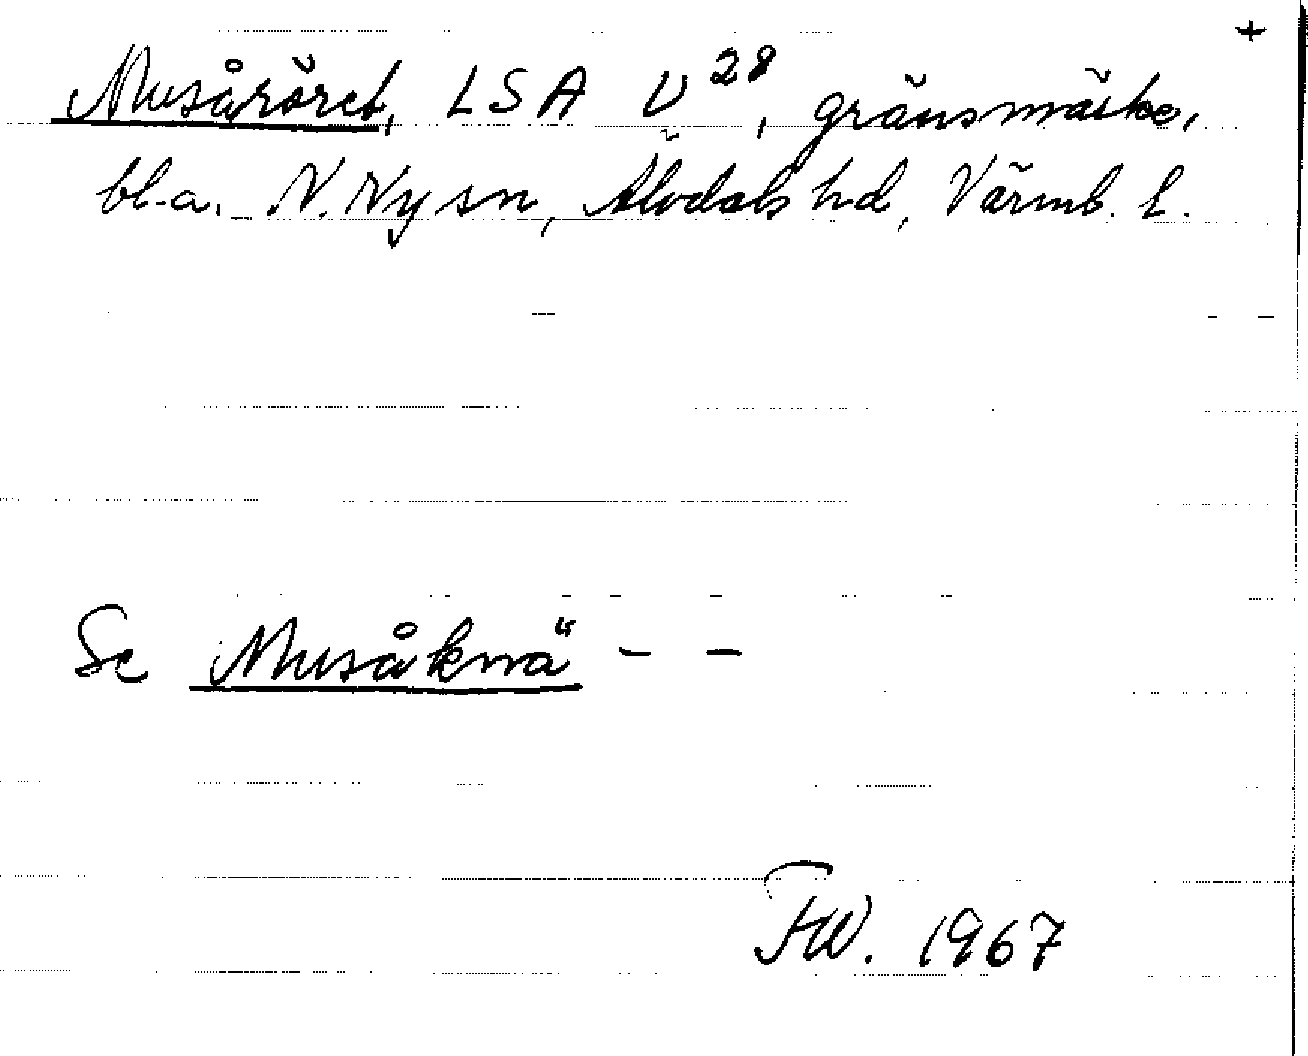 +
Musåröret, LSA V 28, gränsmärke,
bl.a. N. Ny sn, Älvdals hd, Värml. l.
Se Musåknä" - -
FW. 1967